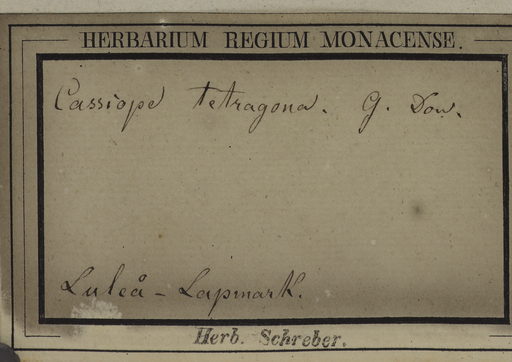 HERBARIUM REGIUM MONACENSE.
Cassiope tetragona. G. Don.
Luleå - Lapmark.
Herb. Schreber.